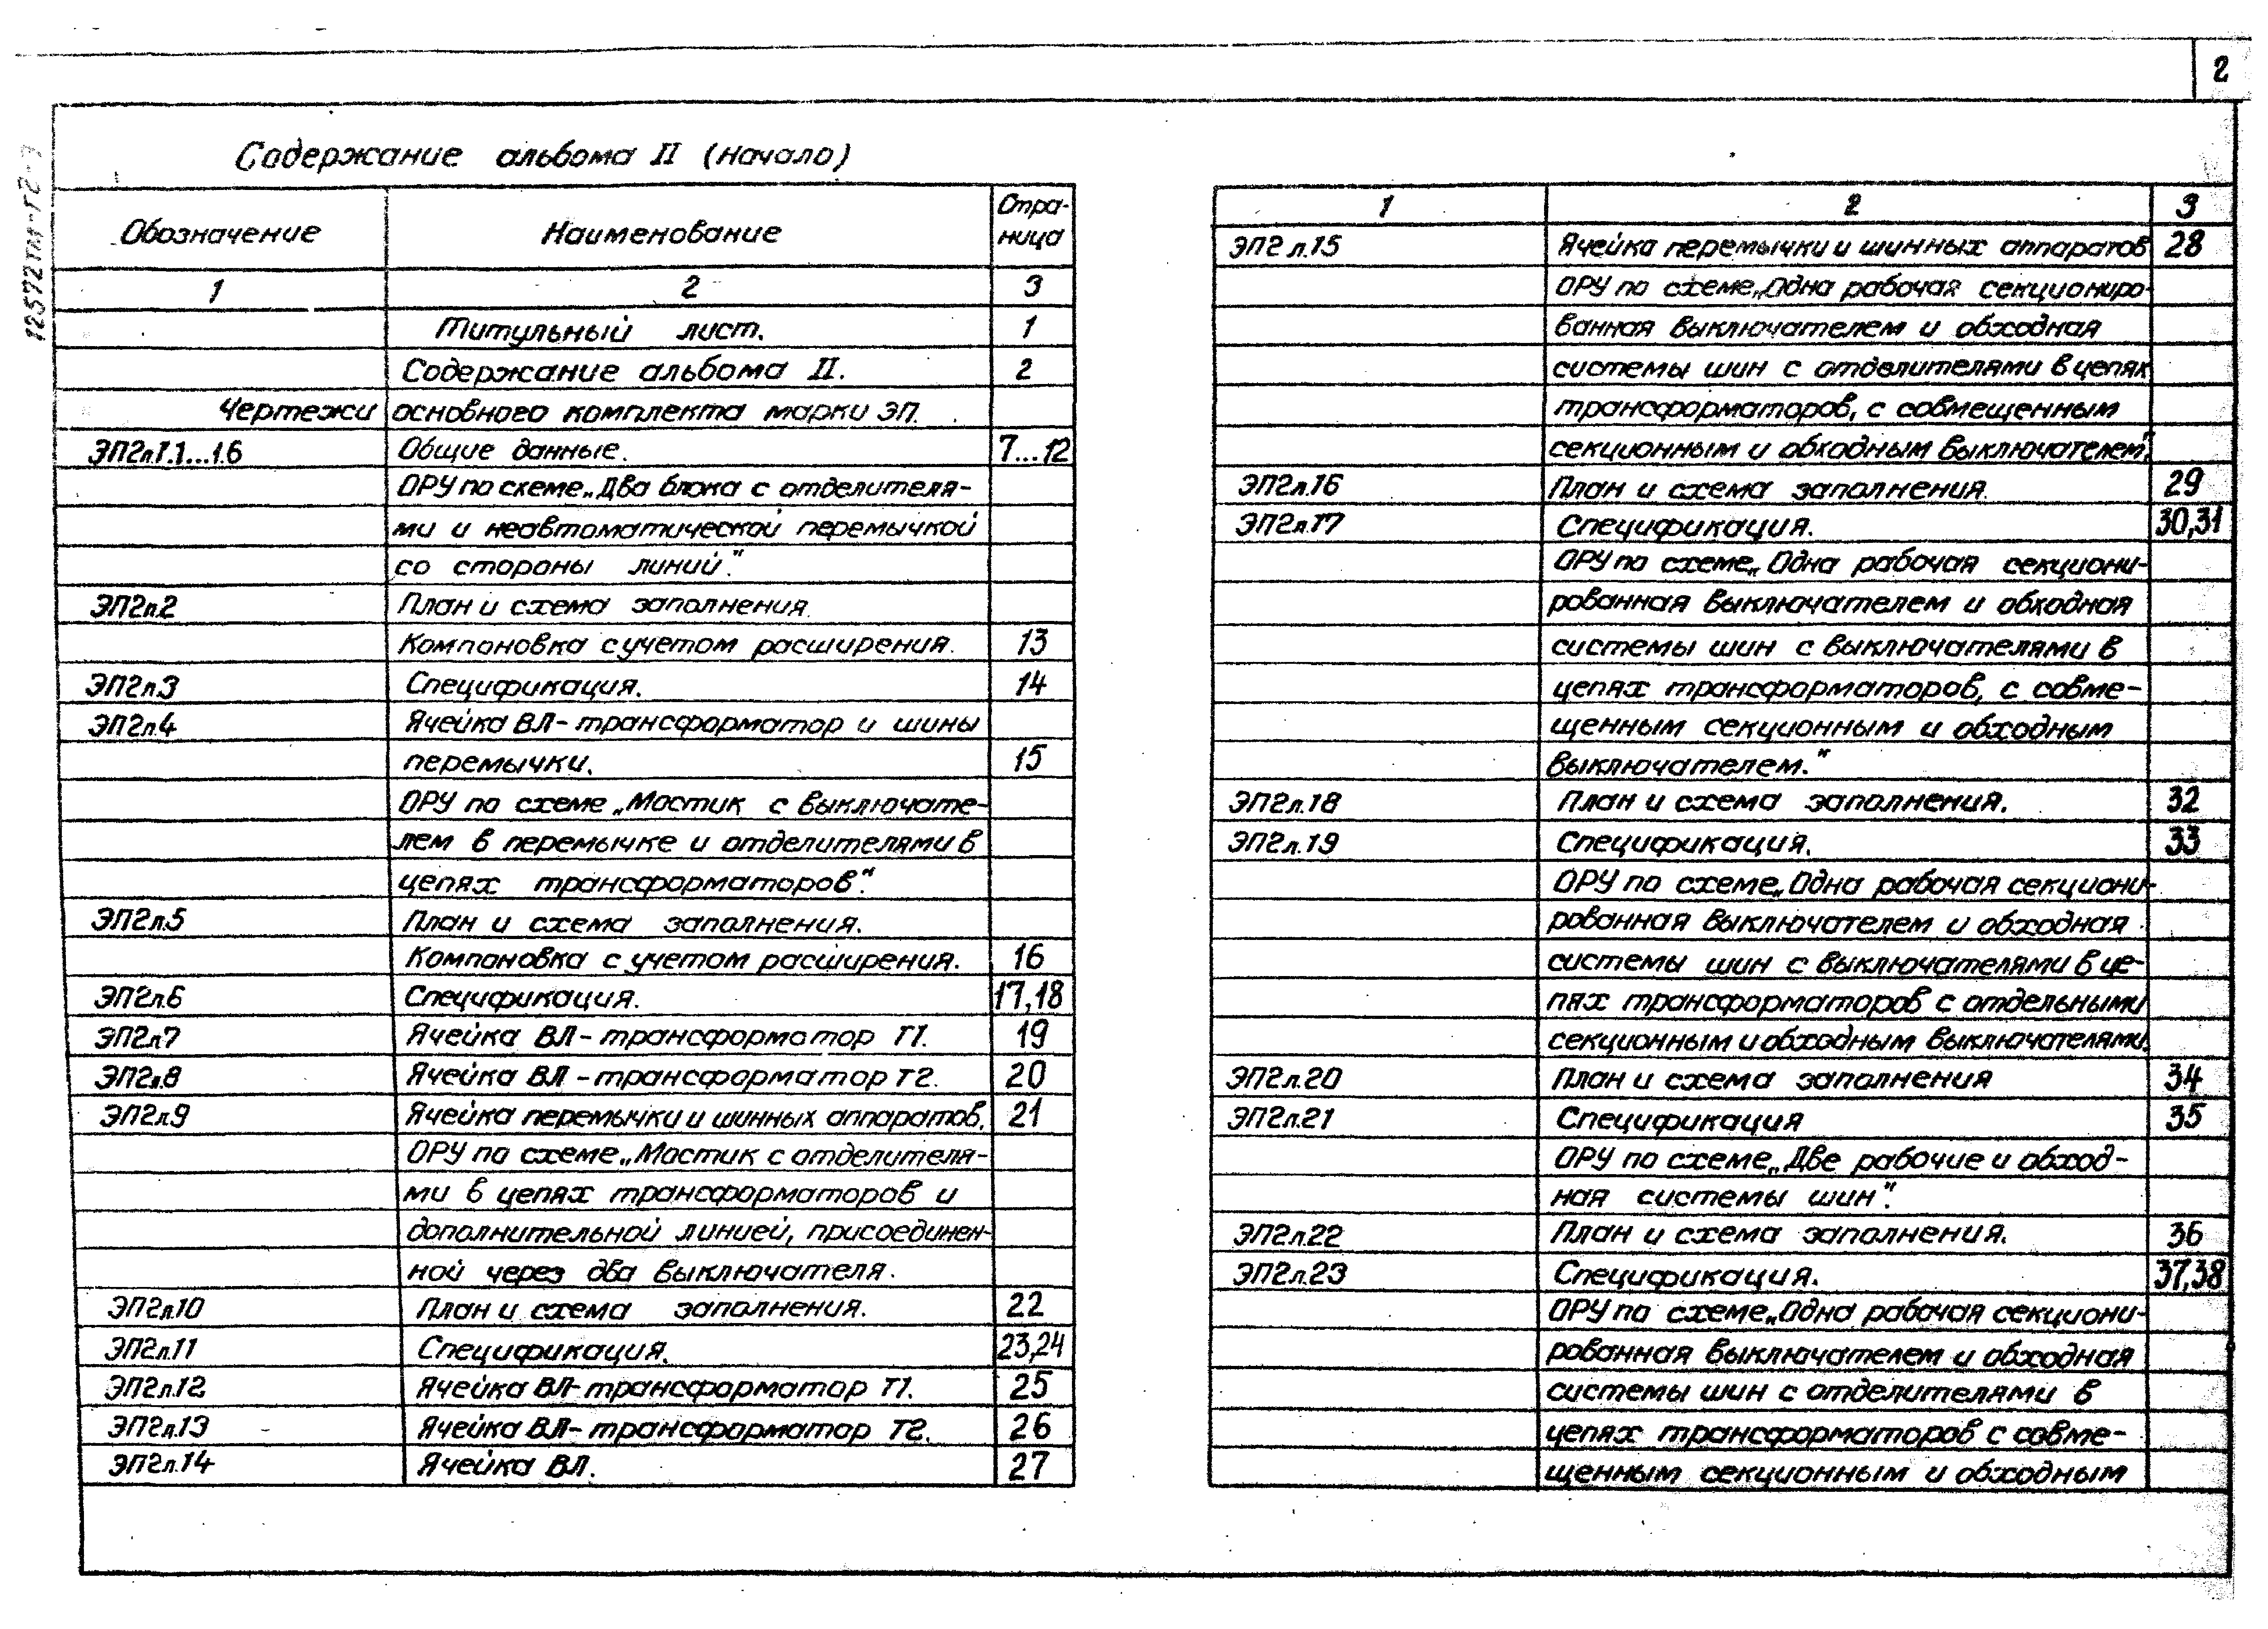 2
12572тм-т2-
Содержание альбома II (начало)
Обозначение Наименование Стра-
ница
1 2 3
Титульный лист. 1
Содержание альбома II. 2
Чертежи основного комплекта марки ЭП.
ЭП2л.1.1...1.6 Общие данные. 7...12
ОРУ по схеме „Два блока с отделителя-
ми и неавтоматической перемычкой
со стороны линий".
ЭП2л.2 План и схема заполнения.
Компоновка с учетом расширения. 13
ЭП2л.3 Спецификация. 14
ЭП2л.4 Ячейка ВЛ-трансформатор и шины
перемычки. 15
ОРУ по схеме „Мостик с выключате-
лем в перемычке и отделителями в
цепях трансформаторов".
ЭП2л.5 План и схема заполнения.
Компоновка с учетом расширения. 16
ЭП2л.6 Спецификация. 17,18
ЭП2л.7 Ячейка ВЛ-трансформатор Т1. 19
ЭП2л.8 Ячейка ВЛ-трансформатор Т2. 20
ЭП2л.9 Ячейка перемычки и шинных аппаратов. 21
ОРУ по схеме „Мостик с отделителя-
ми в цепях трансформаторов и
дополнительной линией, присоединен-
ной через два выключателя.
ЭП2л.10 План и схема заполнения. 22
ЭП2л.11 Спецификация. 23,24
ЭП2л.12 Ячейка ВЛ-трансформатор Т1. 25
ЭП2л.13 Ячейка ВЛ-трансформатор Т2. 26
ЭП2л.14 Ячейка ВЛ. 27
1 2 3
ЭП2л.15 Ячейка перемычки и шинных аппаратов 28
ОРУ по схеме „Одна рабочая секциониро-
ванная выключателем и обходная
системы шин с отделителями в цепях
трансформаторов, с совмещенным
секционным и обходным выключателем".
ЭП2л.16 План и схема заполнения. 29
ЭП2л.17 Спецификация. 30,31
ОРУ по схеме „Одна рабочая секциони-
рованная выключателем и обходная
системы шин с выключателями в
цепях трансформаторов, с совме-
щенным секционным и обходным
выключателем."
ЭП2л.18 План и схема заполнения. 32
ЭП2л.19 Спецификация. 33
ОРУ по схеме „Одна рабочая секциони-
рованная выключателем и обходная
системы шин с выключателями в це-
пях трансформаторов с отдельными
секционным и обходным выключателями.
ЭП2л.20 План и схема заполнения 34
ЭП2л.21 Спецификация 35
ОРУ по схеме „Две рабочие и обход-
ная системы шин".
ЭП2л.22 План и схема заполнения. 36
ЭП2л.23 Спецификация. 37,38
ОРУ по схеме „Одна рабочая секциони-
рованная выключателем и обходная
системы шин с отделителями в
цепях трансформаторов с совме-
щенным секционным и обходным